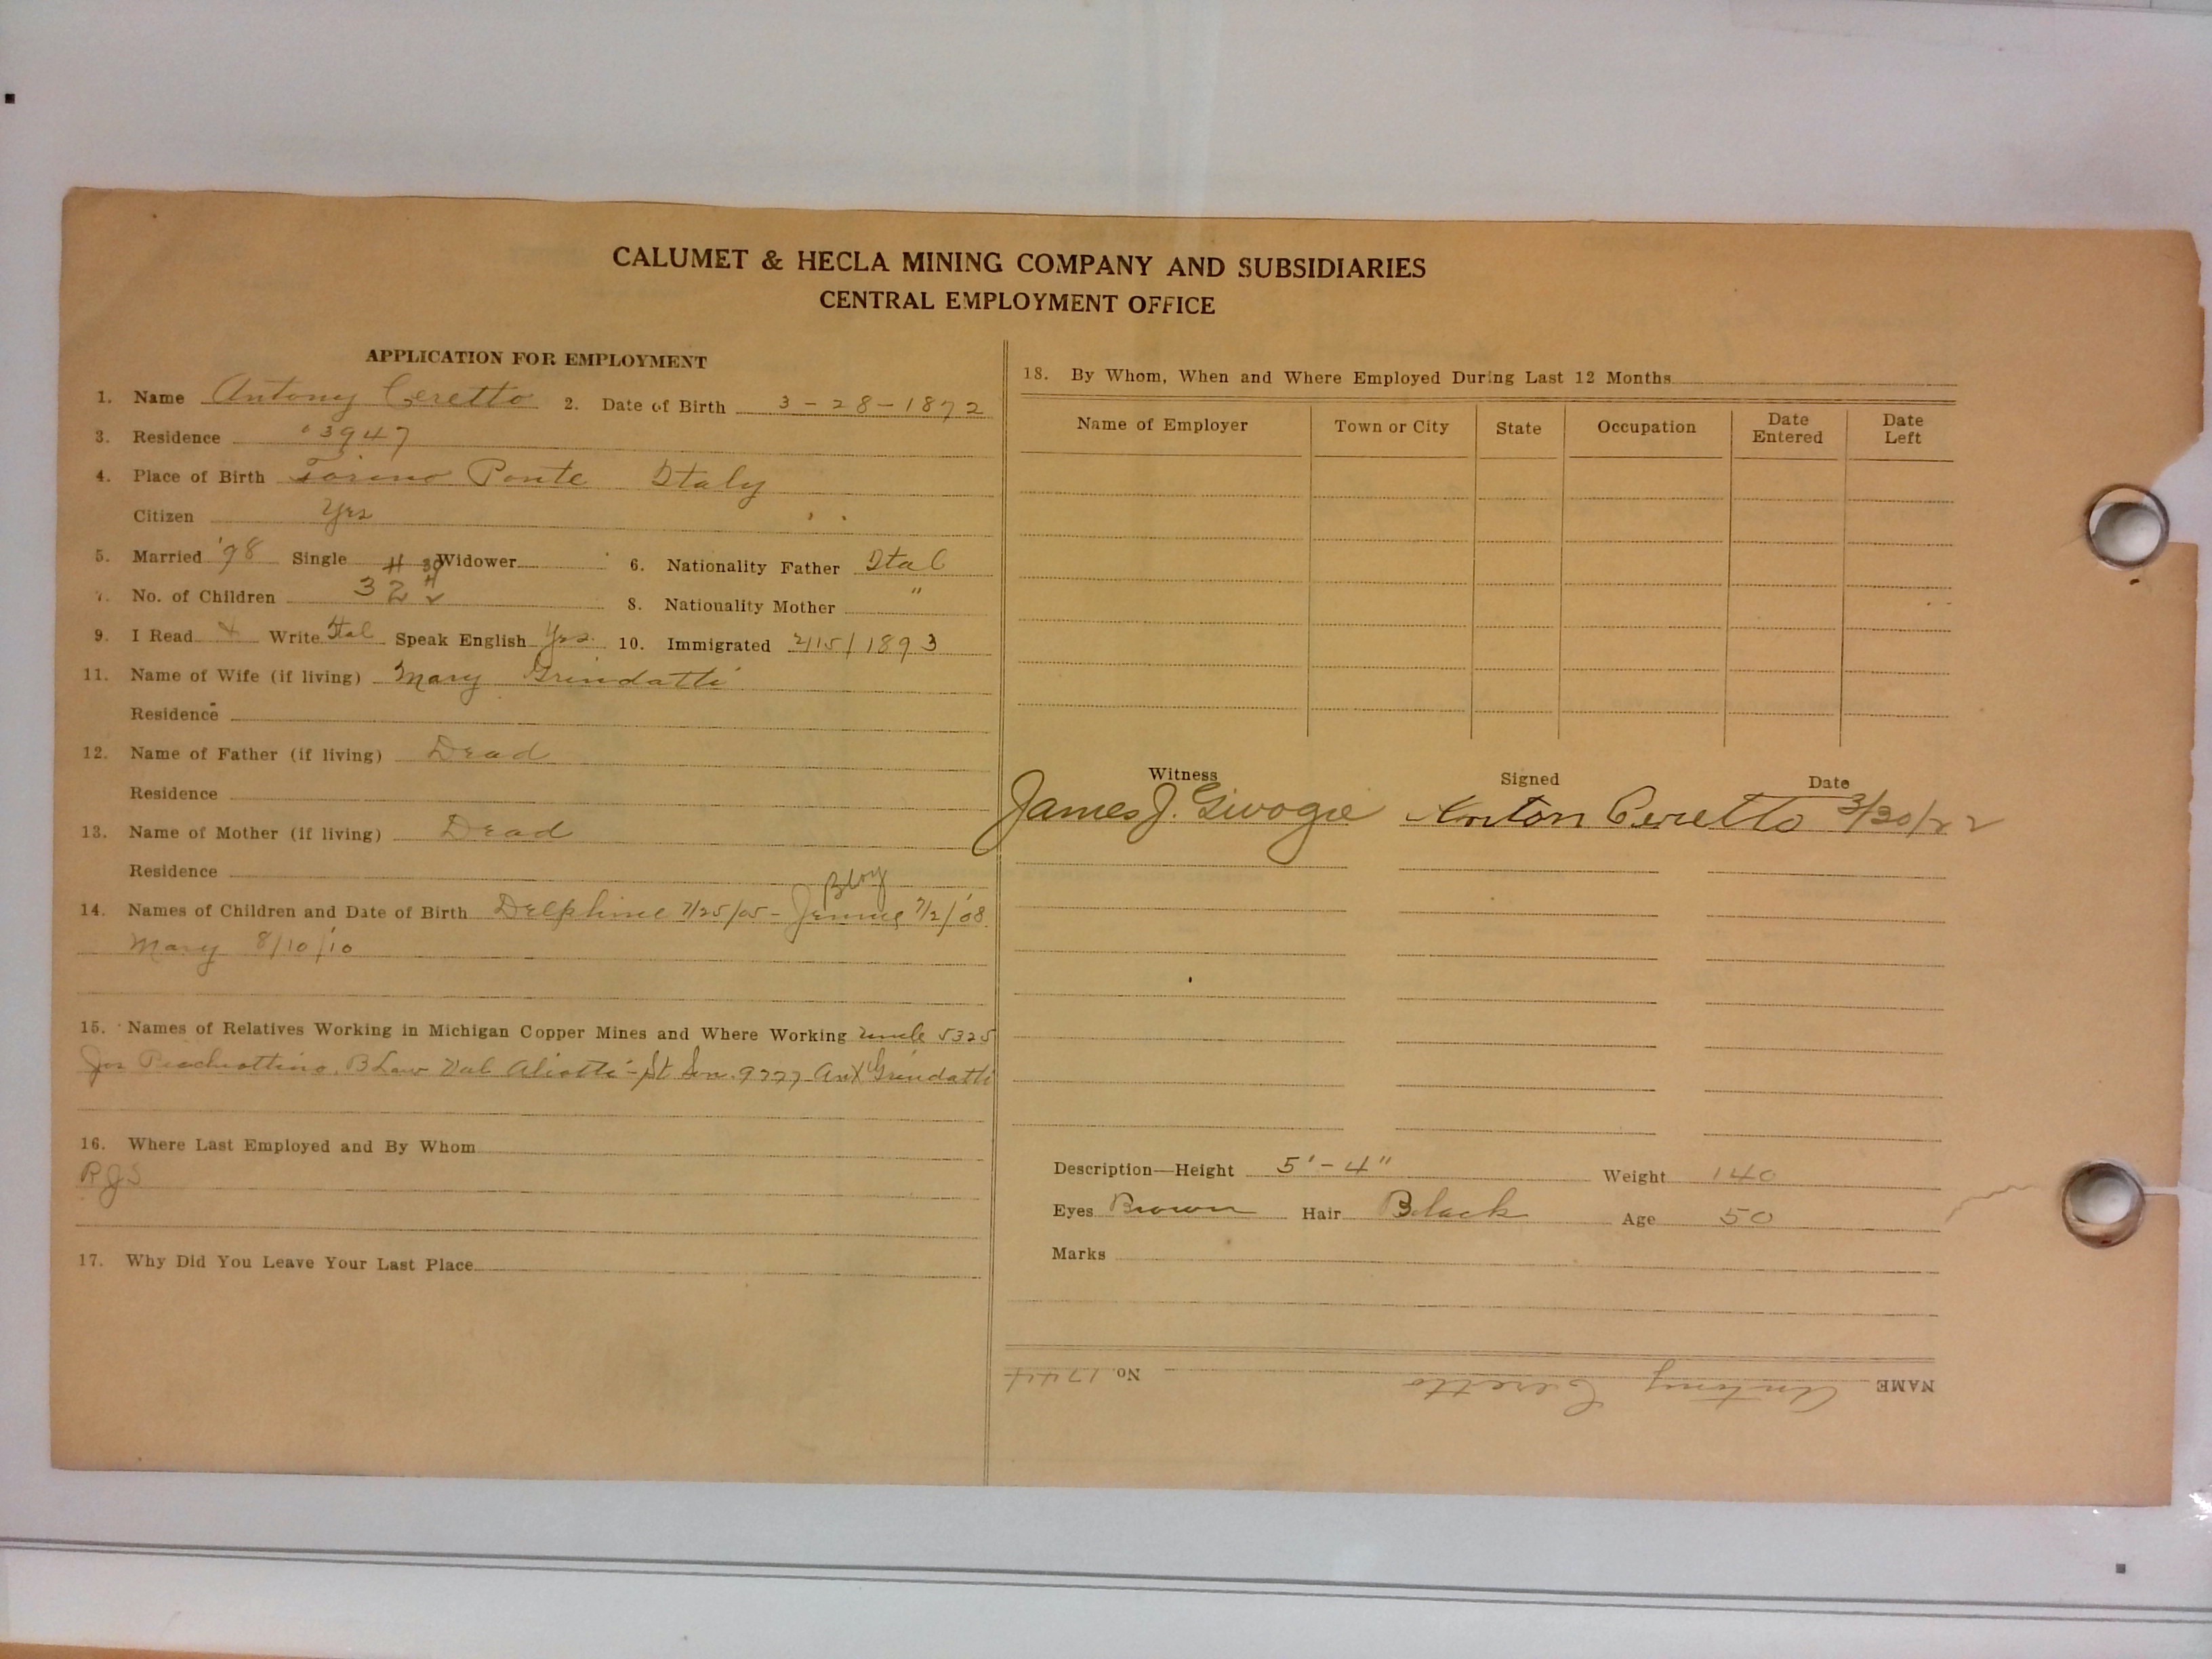 CALUMET & HECLA MINING COMPANY AND SUBSIDIARIES
CENTRAL EMPLOYMENT OFFICE
APPLICATION FOR EMPLOYMENT
1. Name Antony Ceretto 2. Date of Birth 3-28-1872
3. Residence 3947
4. Place of Birth Torino Ponte Italy
Citizen Yes
5. Married '98 Single Widower 6. Nationality Father Ital
7. No. of Children 3 2 8. Nationality Mother "
9. I Read & Write Ital Speak English Yes 10. Immigrated 2/15/1893
11. Name of Wife (if living) Mary Grindatti
Residence
12. Name of Father (if living) Dead
Residence
13. Name of Mother (if living) Dead
Residence
Boy
14. Names of Children and Date of Birth Delphine 7/25/05 - Jimmie 7/2/'08
Mary 8/10/'10
15. Names of Relatives Working in Michigan Copper Mines and Where Working Uncle 5325
Jos B Law Aliotti - 9777 Grindatti
16. Where Last Employed and By Whom
RJS
17. Why Did You Leave Your Last Place
18. By Whom, When and Where Employed During Last 12 Months
Name of Employer Town or City State Occupation Date Entered Date Left
Witness Signed Date
James J. Givogre Anton Ceretto 3/30/22
Description—Height 5'-4" Weight 140
Eyes Brown Hair Black Age 50
Marks
NAME Antony Ceretto No. 1744